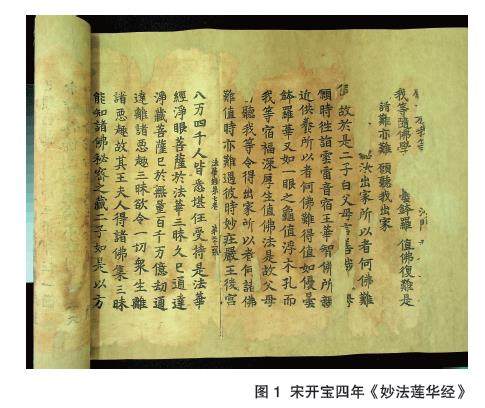 我等隨佛學 曇鉢羅 值佛復難是
諸難亦難 願聽我出家
出家所以者何佛難
故於是二子白父母言善哉
願時往詣雲雷音宿王華智佛所親
近供養所以者何佛難得值如優曇
鉢羅華又如一眼之龜值浮木孔而
我等宿福深厚生值佛法是故父母
聽我等令得出家所以者何諸佛
難值時亦難遇彼時妙莊嚴王後宮
法華經第七卷
八万四千人皆悉堪任受持是法華
經淨眼菩薩於法華三昧久已通達
淨藏菩薩已於無量百千万億劫通
達離諸惡趣三昧欲令一切衆生離
諸惡趣故其王夫人得諸佛集三昧
能知諸佛秘密之藏二子如是以方
图 1 宋开宝四年《妙法莲华经》